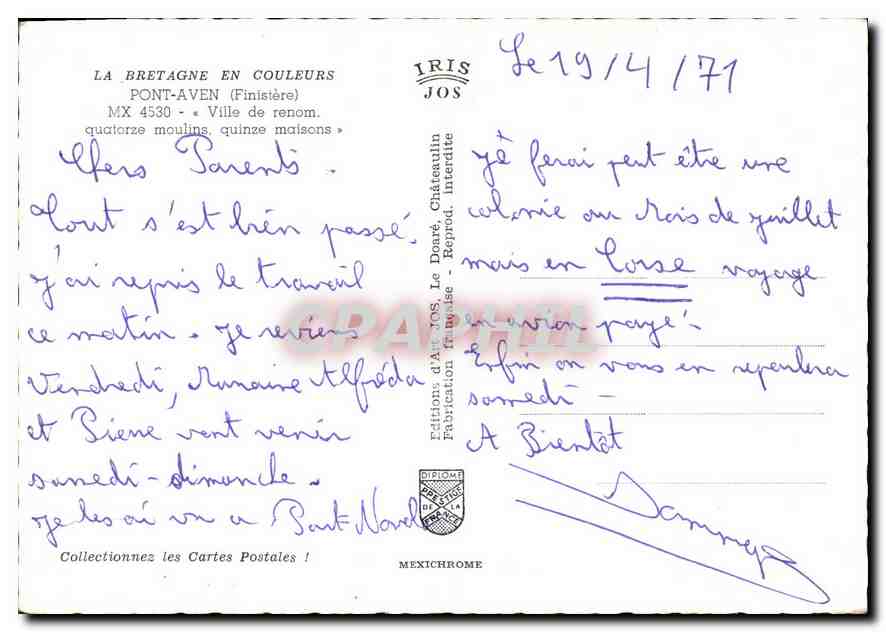 LA BRETAGNE EN COULEURS
PONT-AVEN (Finistère)
MX 4530 - « Ville de renom.
quatorze moulins, quinze maisons »
IRIS
JOS
Le 19/4/71
Chers Parents.
Tout s'est bien passé.
j'ai repris le travail
ce matin. je reviens
Vendredi, Alfréda
et Pierre vont venir
samedi-dimanche.
je les ai vu a Port-Navalo
Editions d'Art JOS, Le Doaré, Châteaulin
Fabrication française - Reprod. interdite
CPAPHIL
je ferai peut être une
colonie au Mois de juillet
mais en Corse voyage
en avion payé.
Enfin on vous en reparlera
samedi -
A Bientôt
DIPLOME
PRESTIGE
DE LA
FRANCE
Collectionnez les Cartes Postales !
MEXICHROME